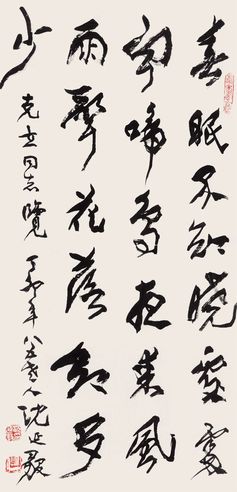 春眠不覺曉處處
聞啼鳥夜來風
雨聲花落知多
少
克立同志覽 丁卯年八五老人沈延毅